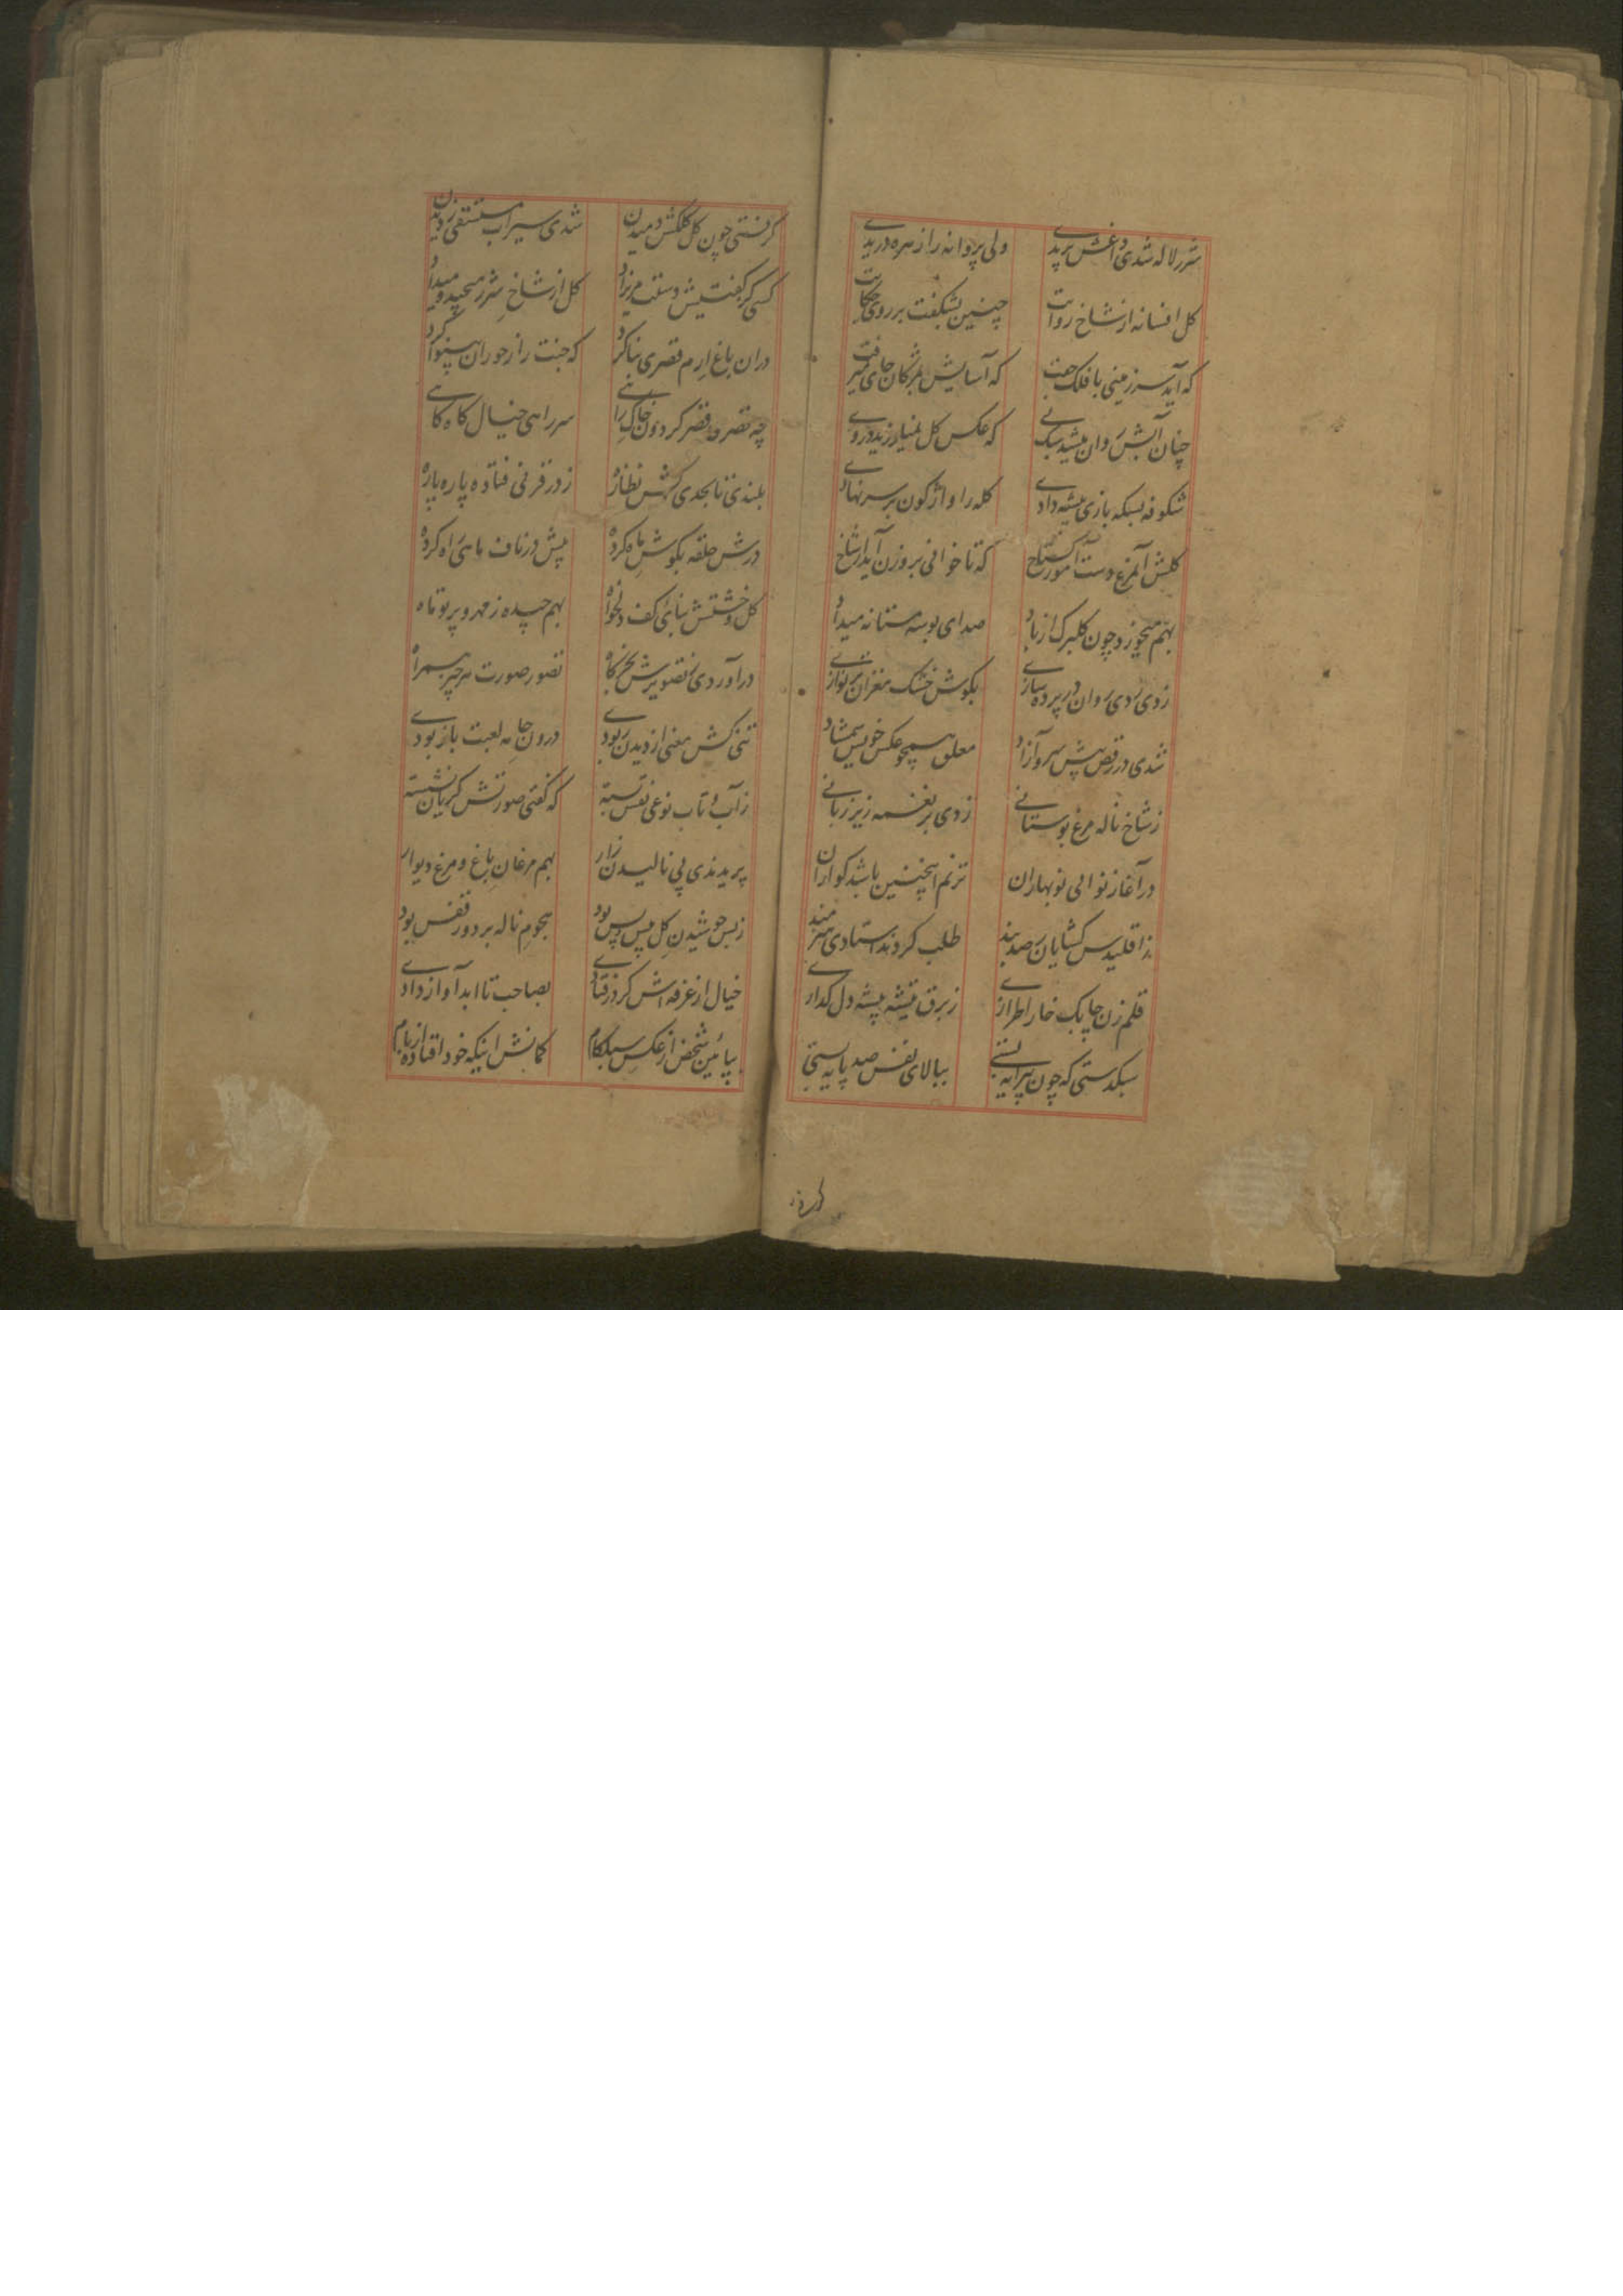 شرر لاله شدی داغش پریدے ولی پروانه را زهره دریدے
کل افسانه از شاخ روایت چنین بشکفت بر روی حکایت
که آید سرزمینی با فلک جفت که آسایش
چنان آبش روان میشد که عکس کل در روے
شکوفه بسکه بازی میشه دادے کله را واژکون بر سر نهادے
کلش آموز کستاخ که تا خوانی برون آید از شاخ
بهم میخورد چون کلبرک از باد صدای بوسه مستانه میداد
زدی رودی روان در پرده سازے بکوش خشک مغزان تر نوازے
شدی در رقص پیش سرو آزاد معلق همچو عکس خویش شمشاد
ز شاخ ناله مرغ بوستانے زدی بر نغمه زیر زبانے
در آغاز نوای نوبهاران ترنم اینچنین باشد کواران
ز اقلیدس کشایان رصد بند طلب کردند استادی هنرمند
قلم زن چابک خارا طرازے ز برق تیشه پیشه دل کدازے
سبکدستی که چون پیرایه بستے ببالای نفس صد پایه بستے
کردر
کرفتی چون کل کلکش دمیدن شدی سیراب مستسقی ز دیدن
کسی کر کفتیش دستت مریزاد کل از شاخ شرر میچید و میداد
دران باغ ارم قصری بنا کرد که جنت را ز حوران بینوا کرد
چه قصر و قصر کردون سر راهی خیال کاه کاهے
بلندی تا بحدی کش نظاره ز در قرنی فتاده پاره پاره
درش حلقه بکوش ماه کرده پیش در ناف ماهی راه کرده
کل و خشتش بنائی کف دلخواه بهم چیده ز مهر و پرتو ماه
در آوردی تصویرش تصور صورت هر چیز همراه
تنی کش معنی از دیدن ربودے درون جامه لعبت باز بودے
ز آب و تاب نوعی نقش بسته که کفتی صورتش کریان نشسته
پریدندی پی نالیدن زار بهم مرغان باغ و مرغ دیوار
ز بس جوشیدن کل پیش و پس بود هجوم ناله بر دور قفس بود
خیال از غرفه اش کر در فتادے بصاحب تا ابد آواز دادے
بپائین شخص از عکس سبککام کمانش اینکه خود افتاده از بام